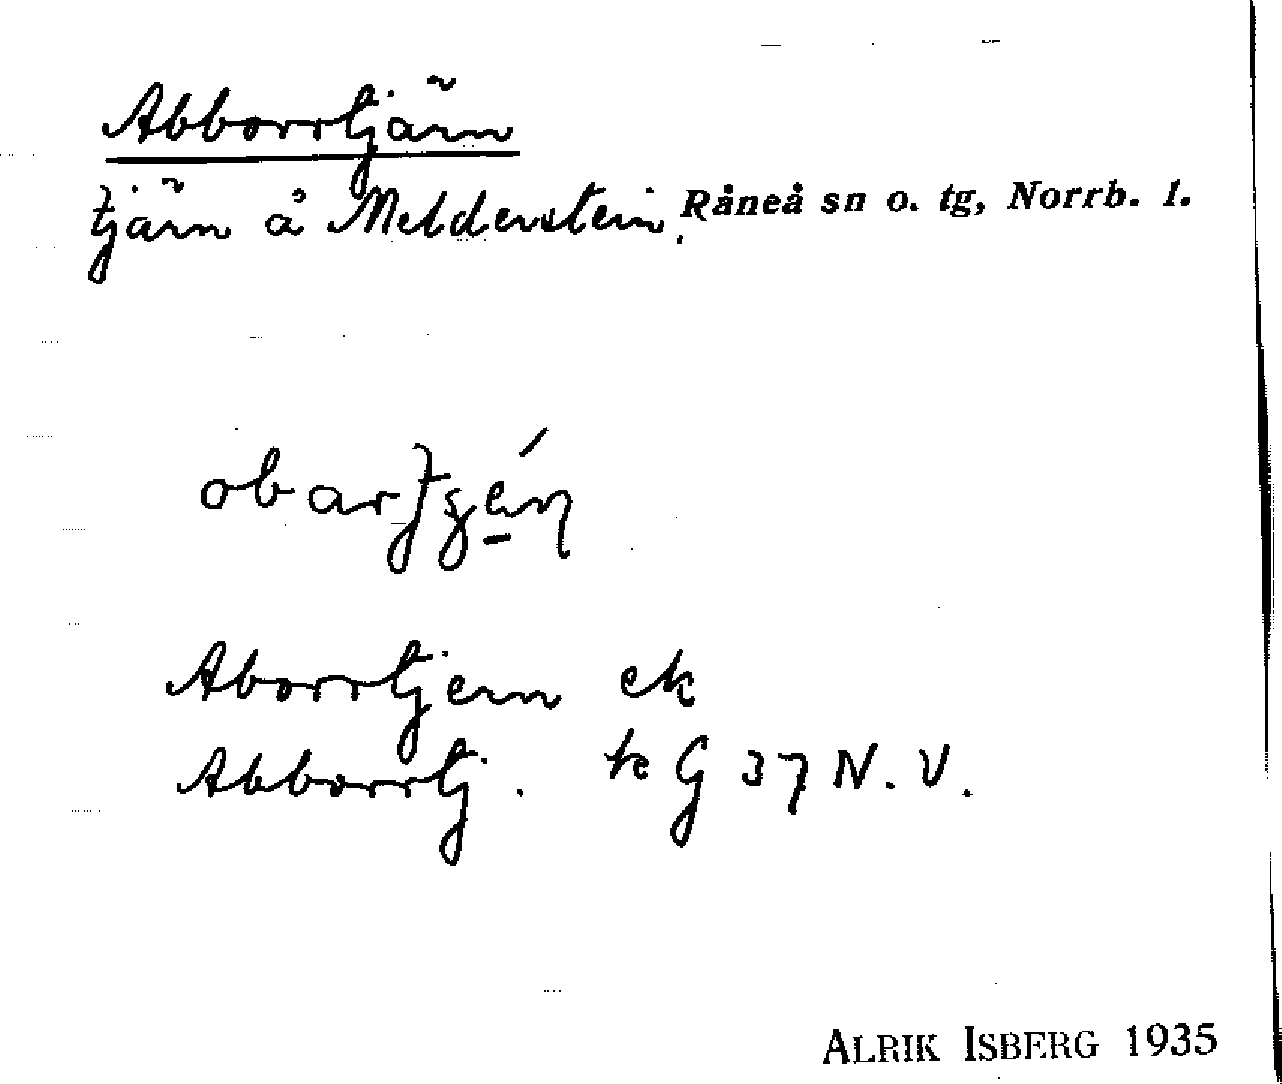 Abborrtjärn
tjärn å Melderstein, Råneå sn o. tg, Norrb. l.
Aborrtjern ek
Abborrtj. te G 37 N. V.
ALRIK ISBERG 1935